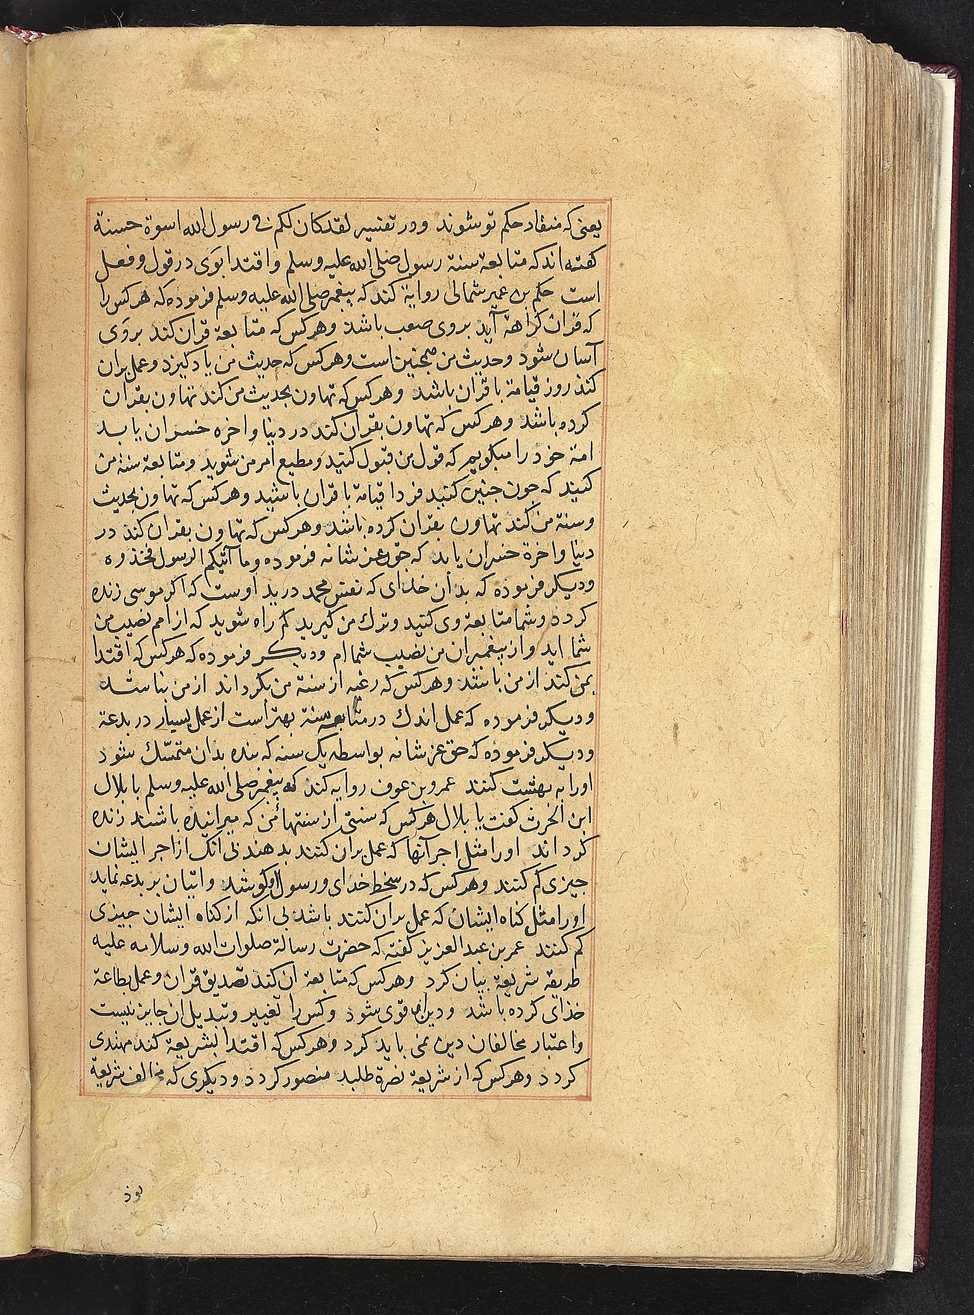 یعنی که منقاد حکم تو شوند و در تفسیر لقد کان لکم فی رسول الله اسوة حسنة
گفته اند که متابعة سنة رسول صلی الله علیه وسلم و اقتدا بوی در قول و فعل
است حکم بن عمیر شمالی روایة کند که پیغمبر صلی الله علیه وسلم فرموده که هر کس را
که قران کراهة آید بروی صعب باشد و هر کس که متابعة قران کند بروی
آسان شود و حدیث من همچنین است و هر کس که حدیث من یاد گیرد و عمل بران
کند روز قیامة با قران باشد و هر کس که تهاون بحدیث من کند تهاون بقران
کرده باشد و هر کس که تهاون بقران کند در دنیا و اخره خسران یابد
امة خود را میگویم که قول من قبول کنید و مطیع امر من شوید و متابعة سنة من
کنید که چون چنین کنید فردا قیامة با قران باشید و هر کس که تهاون بحدیث
و سنة من کند تهاون بقران کرده باشد و هر کس که تهاون بقران کند در
دنیا و اخرة خسران یابد که حق عز شانه فرموده وما آتیکم الرسول فخذوه
و دیگر فرموده که بدان خدای که نفس محمد در ید اوست که اگر موسی زنده
گردد و شما متابعة وی کنید و ترک من گیرید گم راه شوید که از امم نصیب من
شما اید و از پیغمبران من نصیب شما ام و دیگر فرموده که هر کس که اقتدا
بمن کند از من باشد و هر کس که رغبه از سنة من بگرداند از من نباشد
و دیگر فرموده که عمل اندک در متابعه سنة بهتر است از عمل بسیار در بدعة
و دیگر فرموده که حق عز شانه بواسطه یک سنه که بنده بدان متمسک شود
اورا به بهشت کنند عمرو بن عوف روایه کند که پیغمبر صلی الله علیه وسلم با بلال
ابن الحرث گفت یا بلال هر کس که سنتی از سنتهائ من که میرانیده باشند زنده
گرداند اورا مثل اجر آنها که عمل بران کنند بدهند بی انک از اجر ایشان
چیزی کم کنند و هر کس که در سخط خدای و رسول او کوشد و اتیان بر بدعه نماید
اورا مثل گناه ایشان که عمل بران کنند باشد بی انکه از گناه ایشان چیزی
کم کنند عمر بن عبد العزیز گفته که حضرت رسالة صلوات الله و سلامه علیه
طریقه شریعة بیان کرد و هر کس که متابعة ان کند تصدیق قران و عمل بطاعة
خدای کرده باشد و دین او قوی شود و کس را تغییر و تبدیل ان جایز نیست
و اعتبار مخالفان دین نمی باید کرد و هر کس که اقتدا بشریعة کند مهتدی
گردد و هر کس که از شریعة نصرة طلبد منصور گردد و دیگری که مخالف شریعة